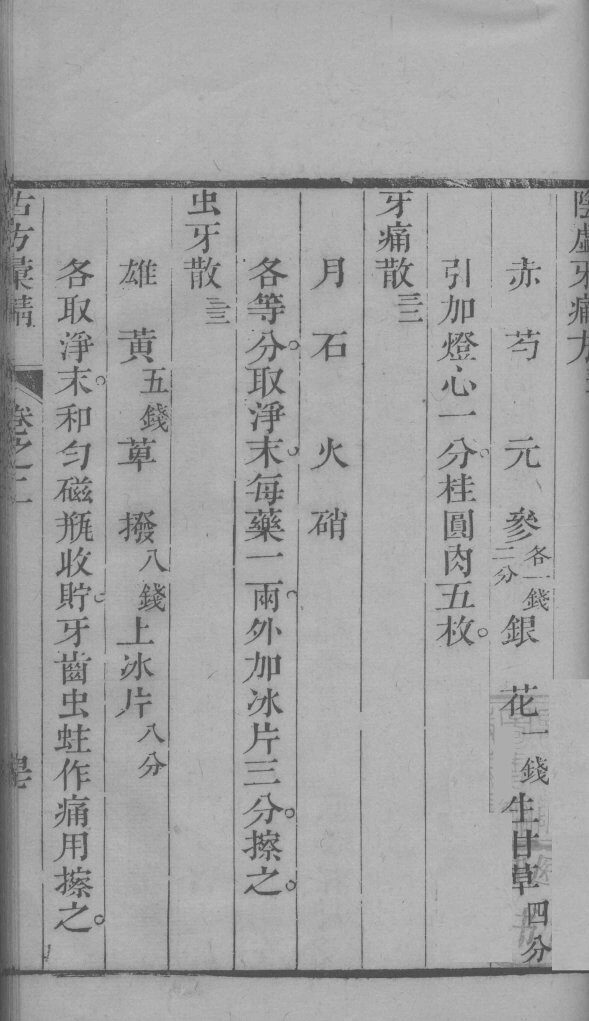 陰虛牙痛方
赤芍元參各一錢二分銀花一錢生甘草四分
引加燈心一分。桂圓肉五枚。
牙痛散三三
月石火硝
各等分。取淨末。每藥一兩。外加冰片三分。擦之。
虫牙散三三
雄黃五錢蓽撥八錢上冰片八分
各取淨末。和勻磁甁收貯。牙齒虫蛀作痛用擦之。
古方彙精 卷之二